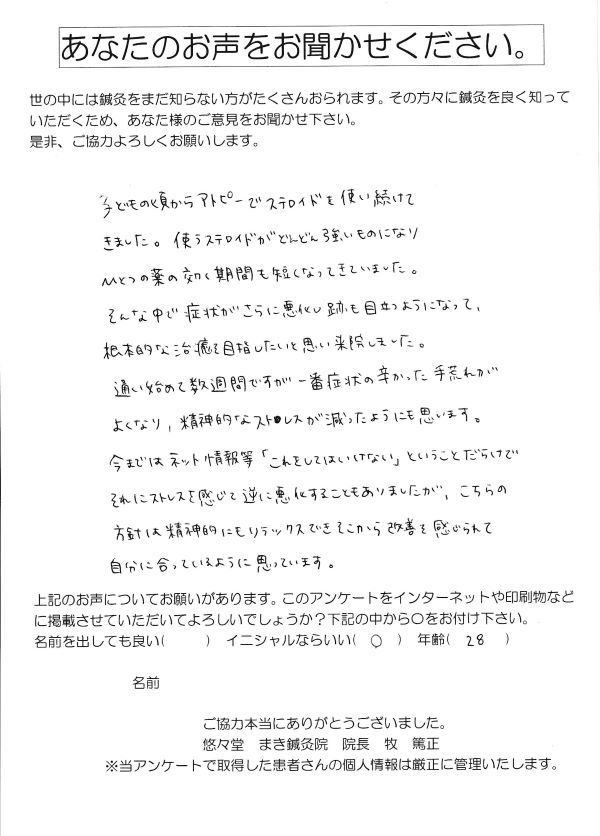 あなたのお声をお聞かせください。
世の中には鍼灸をまだ知らない方がたくさんおられます。その方々に鍼灸を良く知って
いただくため、あなた様のご意見をお聞かせ下さい。
是非、ご協力よろしくお願いします。
子どもの頃からアトピーでステロイドを使い続けて
きました。使うステロイドがどんどん強いものになり
ひとつの薬の効く期間も短くなってきていました。
そんな中で症状がさらに悪化し跡も目立つようになって、
根本的な治癒を目指したいと思い来院しました。
通い始めて数週間ですが一番症状の辛かった手荒れが
よくなり、精神的なストレスが減ったようにも思います。
今まではネット情報等「これをしてはいけない」ということだらけで
それにストレスを感じて逆に悪化することもありましたが、こちらの
方針は精神的にもリラックスできそこから改善を感じられて
自分に合っているように思っています。
上記のお声についてお願いがあります。このアンケートをインターネットや印刷物など
に掲載させていただいてよろしいでしょうか？下記の中から〇をお付け下さい。
名前を出しても良い(　　) イニシャルならいい( 〇 ) 年齢( 28 )
名前
ご協力本当にありがとうございました。
悠々堂　まき鍼灸院　院長　牧　篤正
※当アンケートで取得した患者さんの個人情報は厳正に管理いたします。